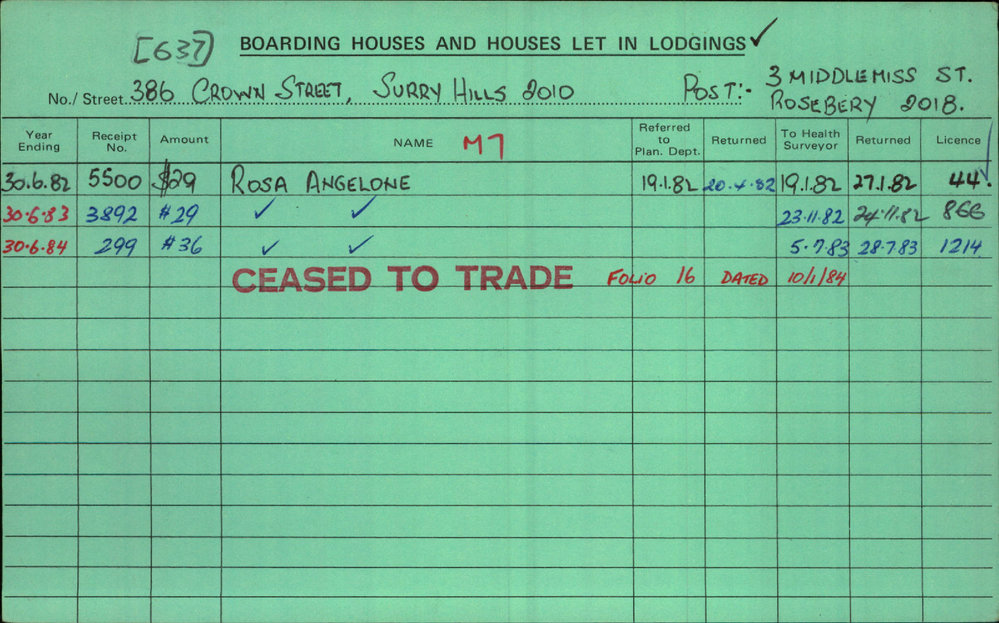 [637] BOARDING HOUSES AND HOUSES LET IN LODGINGS ✓
No./ Street 386 CROWN STREET, SURRY HILLS 2010 POST:- 3 MIDDLEMISS ST.
ROSEBERY 2018.
Year Ending Receipt No. Amount NAME M7 Referred to Plan. Dept. Returned To Health Surveyor Returned Licence
30.6.82 5500 $29 ROSA ANGELONE 19.1.82 20.4.82 19.1.82 27.1.82 44. ✓
30.6.83 3892 $29 ✓ ✓ 23.11.82 24.11.82 866
30.6.84 299 $36 ✓ ✓ 5.7.83 28.7.83 1214
CEASED TO TRADE FOLIO 16 DATED 10/1/84